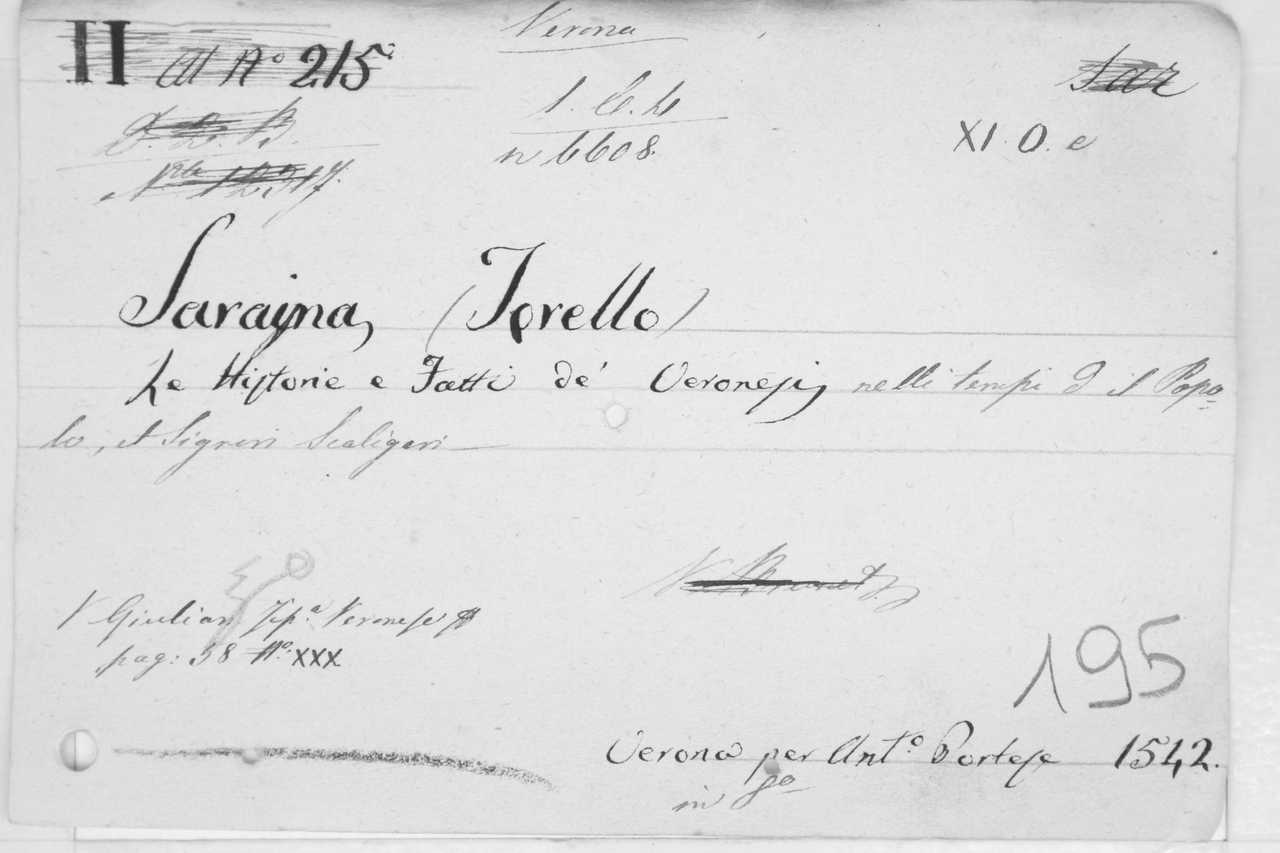 II Aº 215
Verona
Sar
n 6608
XI. O. e
Sarajna, (Torello)
Le Historie e Fatti de' Veronesi, nelli tempi d il Popo
lo, et Signori Scaligeri
V Giuliari Tipª Veronese
pag: 38 Nº XXX
195
Verona per Antº Portese 1542.
in 8º